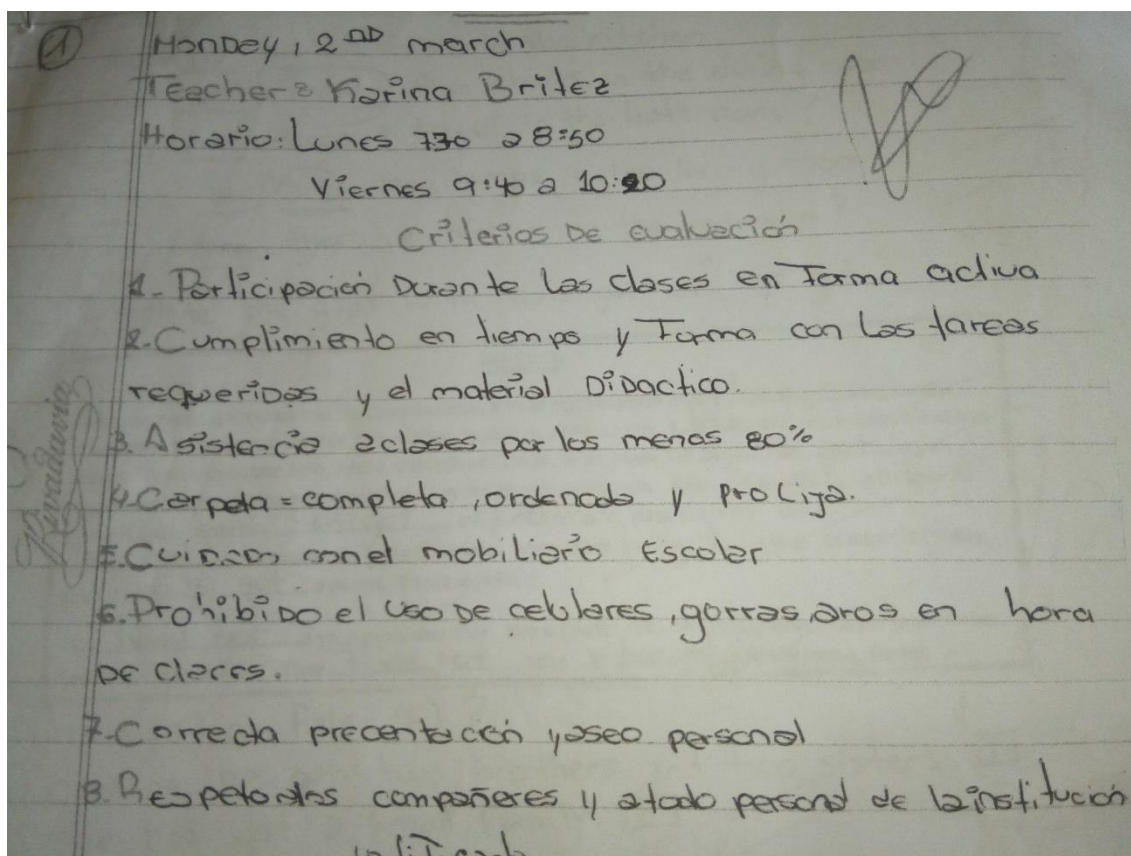 1
Monday, 2ND march
Teacher: Karina Britez
Horario: Lunes 730 a 8:50
Viernes 9:40 a 10:20
Criterios De evaluación
1- Participación Durante las clases en Forma activa
2. Cumplimiento en tiempo y Forma con las tareas
requeridas y el material Didactico.
3. Asistencia a clases por los menos 80%
4. Carpeta = completa, ordenada y prolija.
5. Cuidado con el mobiliario Escolar
6. Prohibido el uso De celulares, gorras, aros en hora
De clases.
7- Correcta precentación y aseo personal
8. Respeto a los compañeros y a todo personal de la institución
Rivadavia